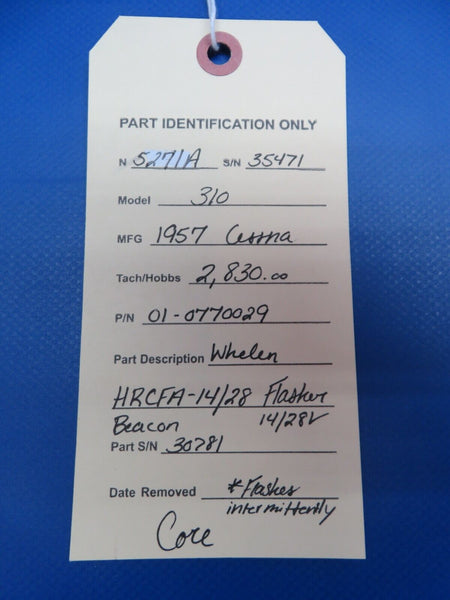 PART IDENTIFICATION ONLY
N 5271A S/N 35471
Model 310
MFG 1957 Cessna
Tach/Hobbs 2,830.00
P/N 01-0770029
Part Description Whelen
HRCFA-14/28 Flasher
Beacon 14/28V
Part S/N 30781
Date Removed *Flashes
intermittently
Core